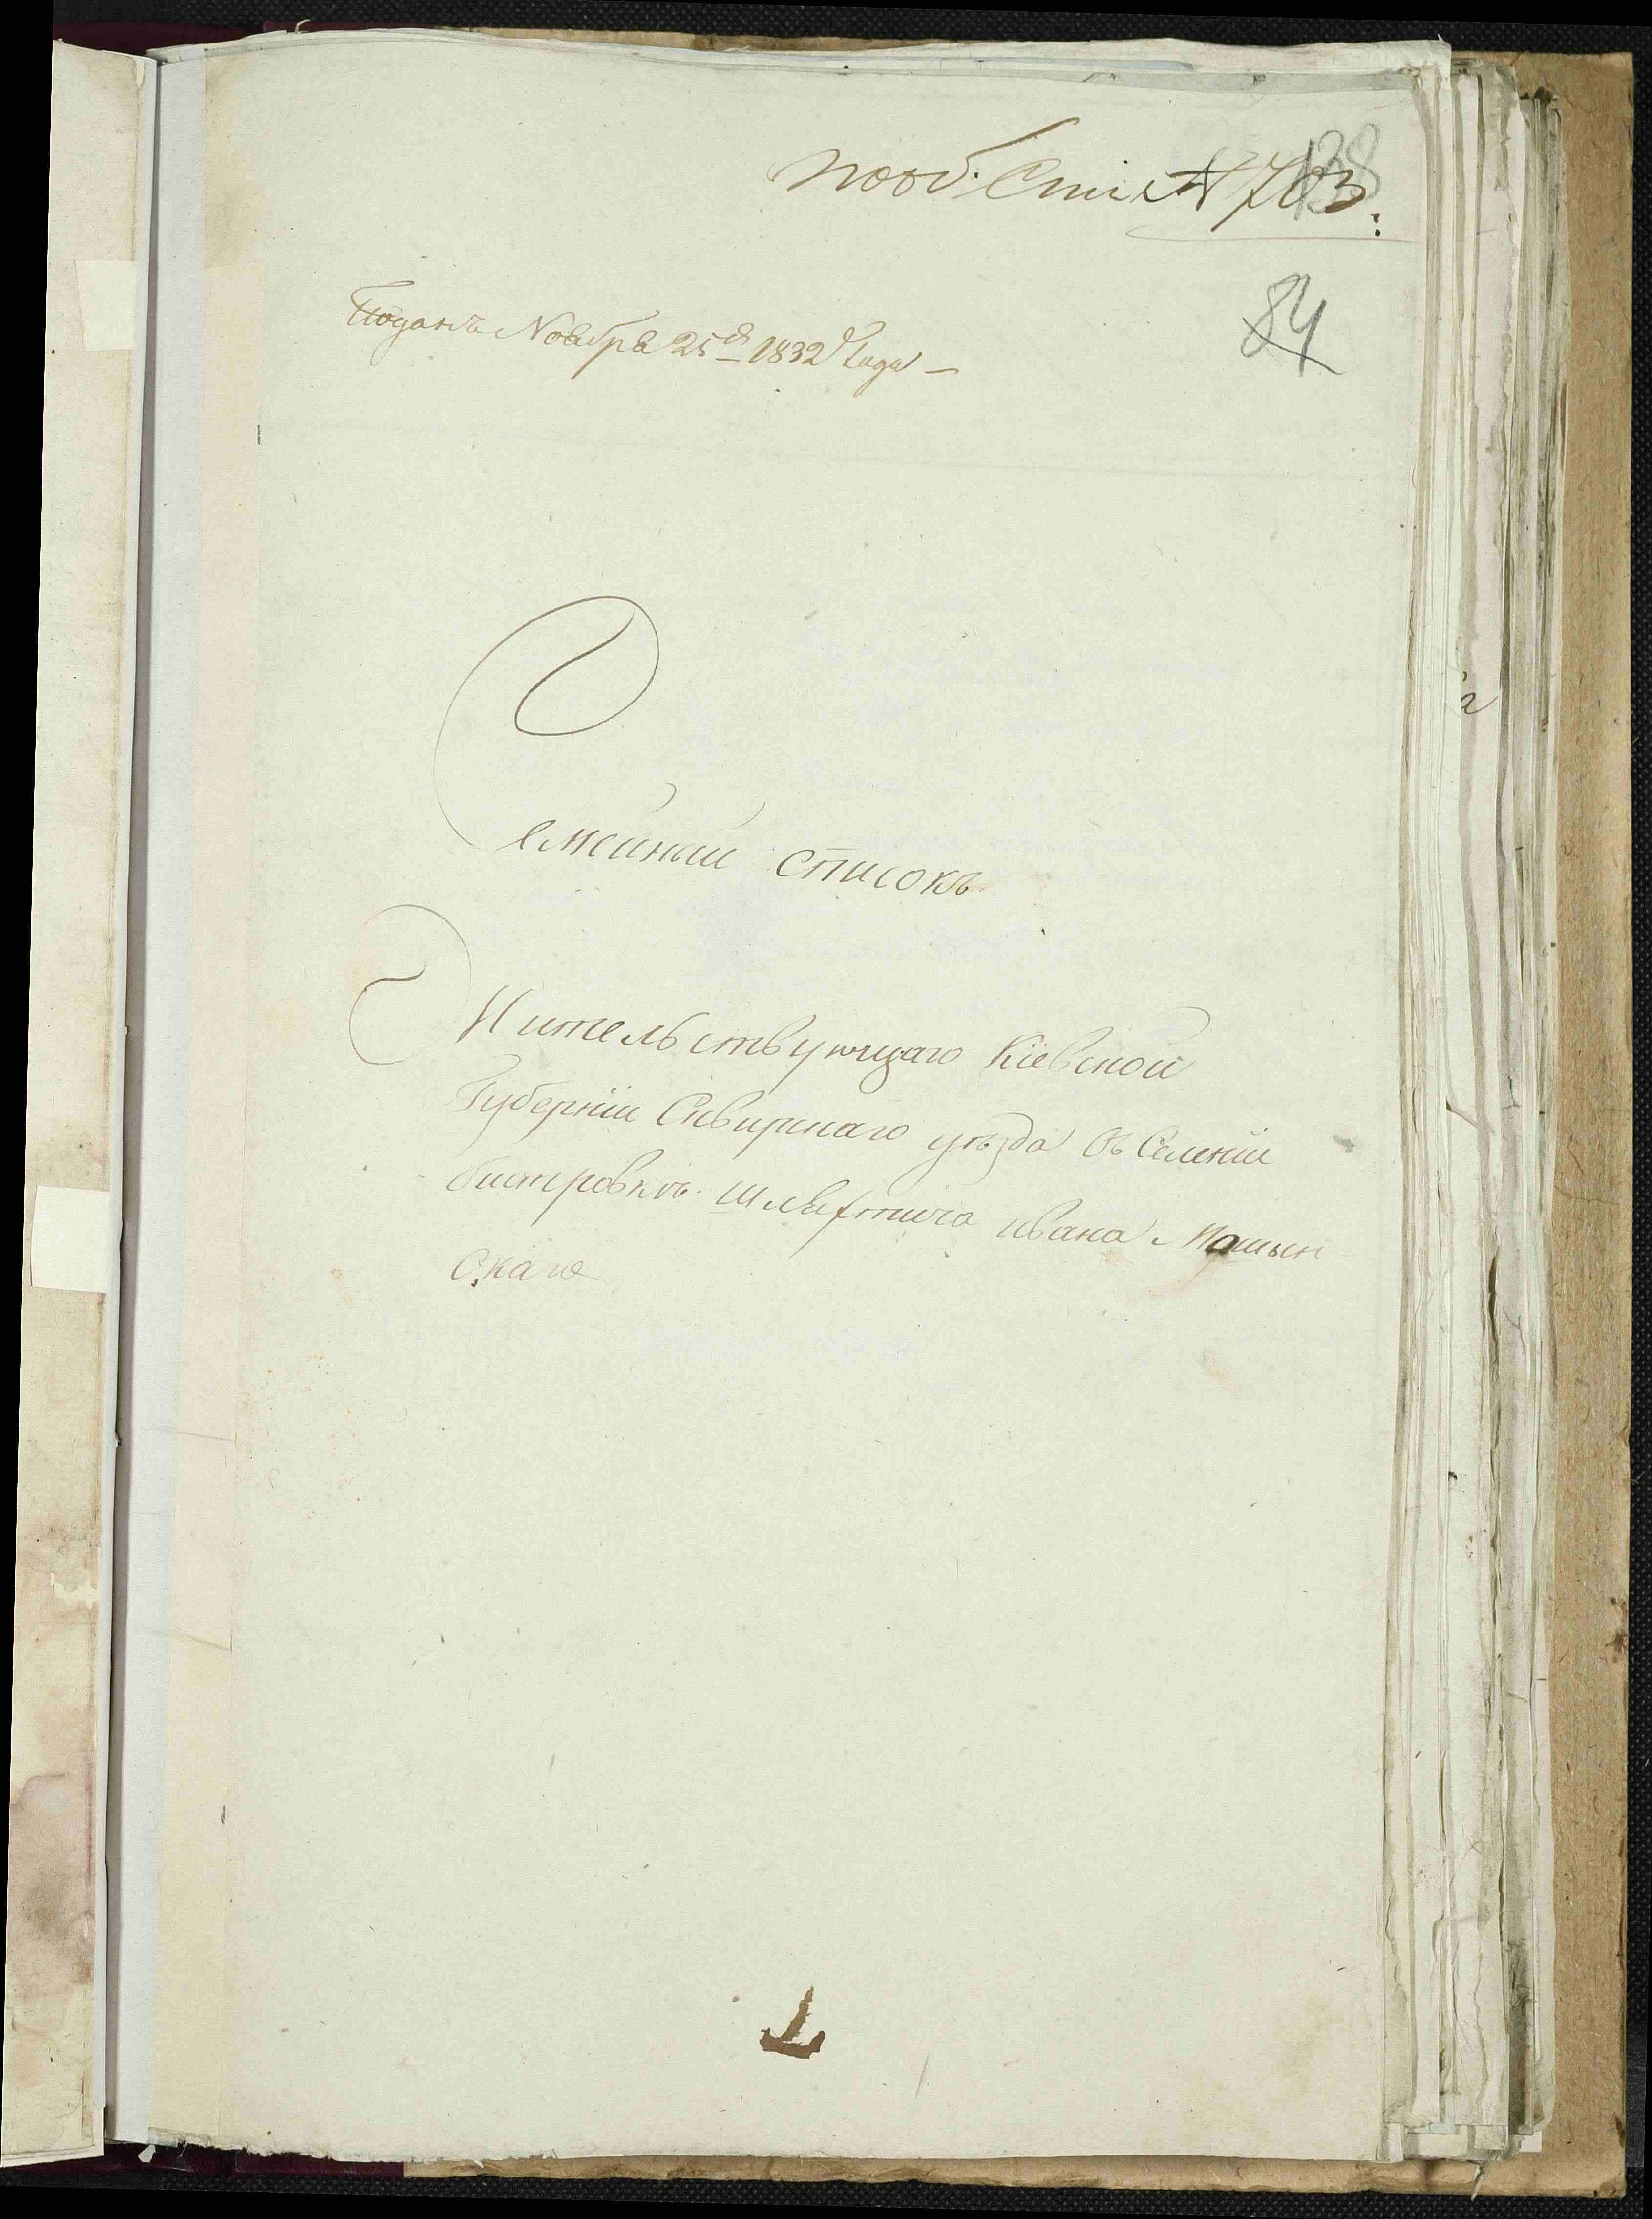 138
по об. Спис. № 703.
84
Поданъ Ноября 25 д 1832 Года —
Семейный списокъ
Жительствующаго Кіевской
Губерніи Сквирскаго уѣзда Въ Селеніи
бистровкѣ шляхтича ивана Мошин
Скаго